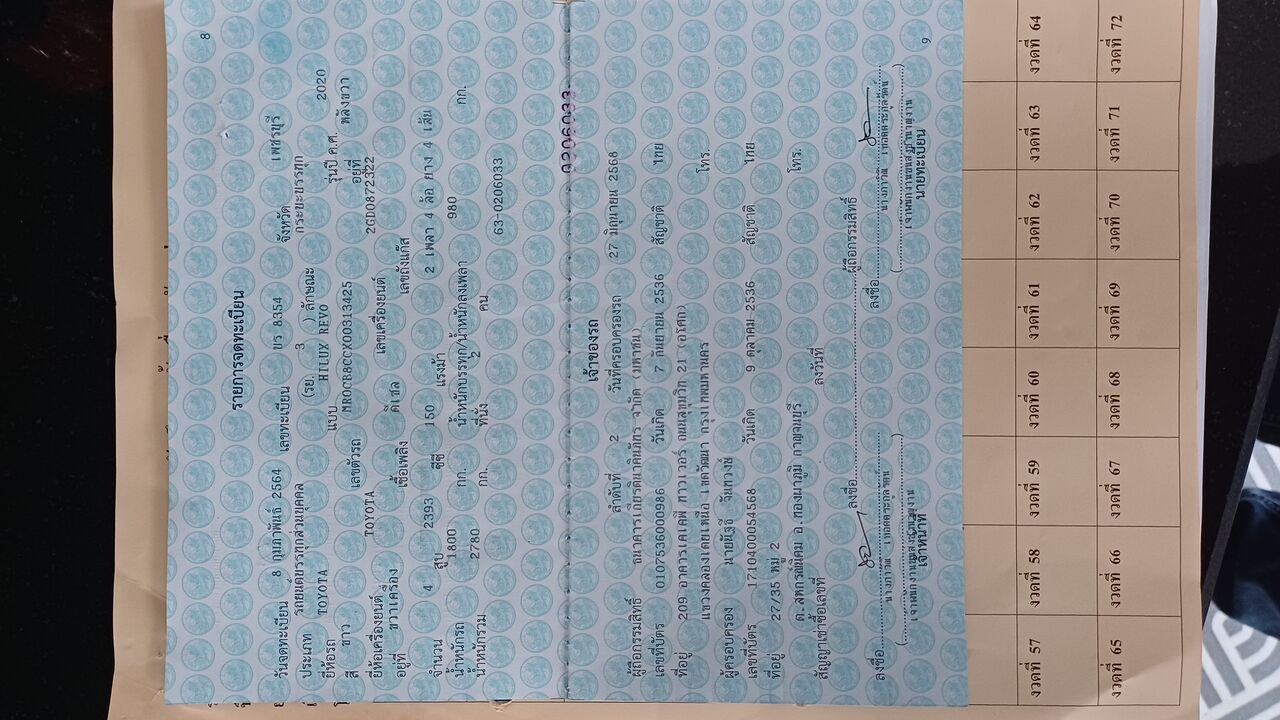 8
รายการจดทะเบียน
วันจดทะเบียน 8 กุมภาพันธ์ 2564 เลขทะเบียน บร 8354 จังหวัด เพชรบุรี
ประเภท รถยนต์บรรทุกส่วนบุคคล (รย. 3 ) ลักษณะ กระบะบรรทุก
ยี่ห้อรถ TOYOTA แบบ HILUX REVO รุ่นปี ค.ศ. 2020
สี ขาว เลขตัวรถ MR0CB8CCX00313425 อยู่ที่ หลังขวา
ยี่ห้อเครื่องยนต์ TOYOTA เลขเครื่องยนต์ 2GD0872322
อยู่ที่ ขวาเครื่อง เชื้อเพลิง ดีเซล เลขถังแก๊ส
จำนวน 4 สูบ 2393 ซีซี 150 แรงม้า 2 เพลา 4 ล้อ ยาง 4 เส้น
น้ำหนักรถ 1800 กก. น้ำหนักบรรทุก/น้ำหนักลงเพลา 980 กก.
น้ำหนักรวม 2780 กก. ที่นั่ง 2 คน
63-0206033
0206033
เจ้าของรถ
ลำดับที่ 2 วันที่ครอบครองรถ 27 มิถุนายน 2568
ผู้ถือกรรมสิทธิ์ ธนาคารเกียรตินาคินภัทร จำกัด (มหาชน)
เลขที่บัตร 0107536000986 วันเกิด 7 กันยายน 2536 สัญชาติ ไทย
ที่อยู่ 209 อาคารเคเคพี ทาวเวอร์ ถนนสุขุมวิท 21 (อโศก)
แขวงคลองเตยเหนือ เขตวัฒนา กรุงเทพมหานคร โทร.
ผู้ครอบครอง
เลขที่บัตร 1710400054568 วันเกิด 9 ตุลาคม 2536 สัญชาติ ไทย
ที่อยู่ 27/35 หมู่ 2
ต.สหกรณ์นิคม อ.ทองผาภูมิ กาญจนบุรี โทร.
สัญญาเช่าซื้อเลขที่ ลงวันที่
ลงชื่อ ผู้ถือกรรมสิทธิ์
ลงชื่อ ลงชื่อ
เจ้าหน้าที่ นายทะเบียน
9
งวดที่ 57 งวดที่ 58 งวดที่ 59 งวดที่ 60 งวดที่ 61 งวดที่ 62 งวดที่ 63 งวดที่ 64
งวดที่ 65 งวดที่ 66 งวดที่ 67 งวดที่ 68 งวดที่ 69 งวดที่ 70 งวดที่ 71 งวดที่ 72